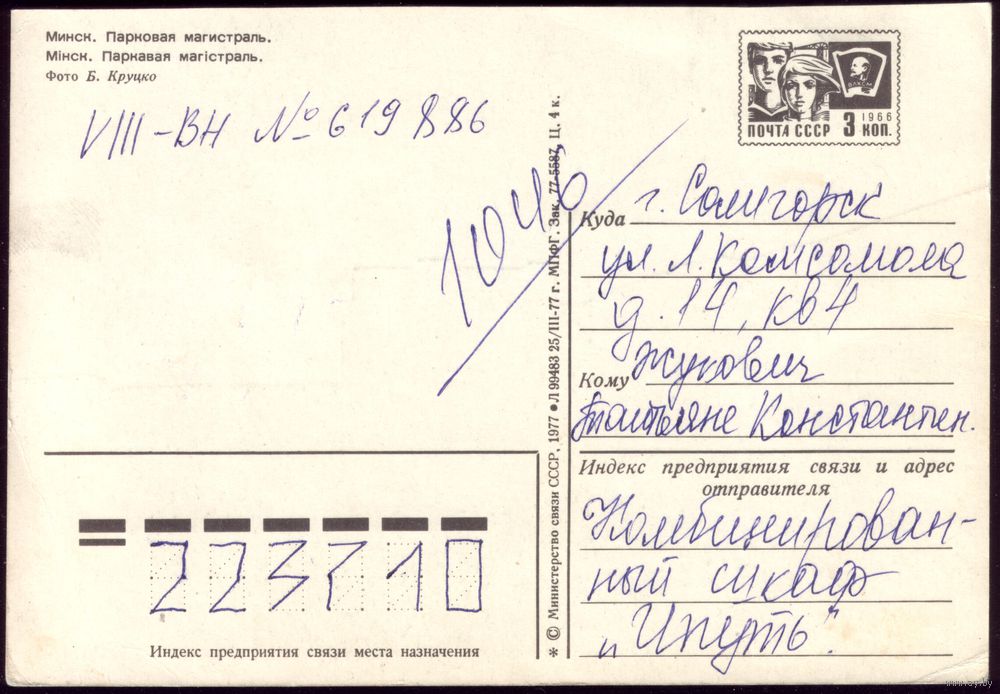 Минск. Парковая магистраль.
Мінск. Паркавая магістраль.
Фото Б. Круцко
VIII-ВН № 619886
1040
ПОЧТА СССР 3 КОП.
1966
ВЛКСМ
Куда г. Солигорск
ул. Л. Комсомола
д. 14, кв 4
Кому Жукович
Татьяне Константин.
Индекс предприятия связи и адрес
отправителя
Комбинирован-
ный шкаф
„Ипуть".
223710
Индекс предприятия связи места назначения
* © Министерство связи СССР, 1977 ● Л 99483 25/III-77 г. МПФГ. Зак. 77-5587. Ц. 4 к.